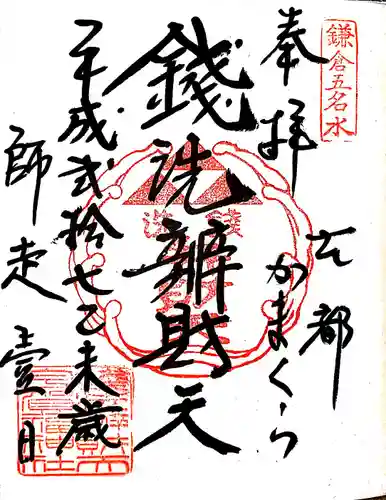 鎌倉五名水
奉拝
古都
かまくら
銭洗
錢洗辨財天
平成弐拾七乙未歳
師走
壹日